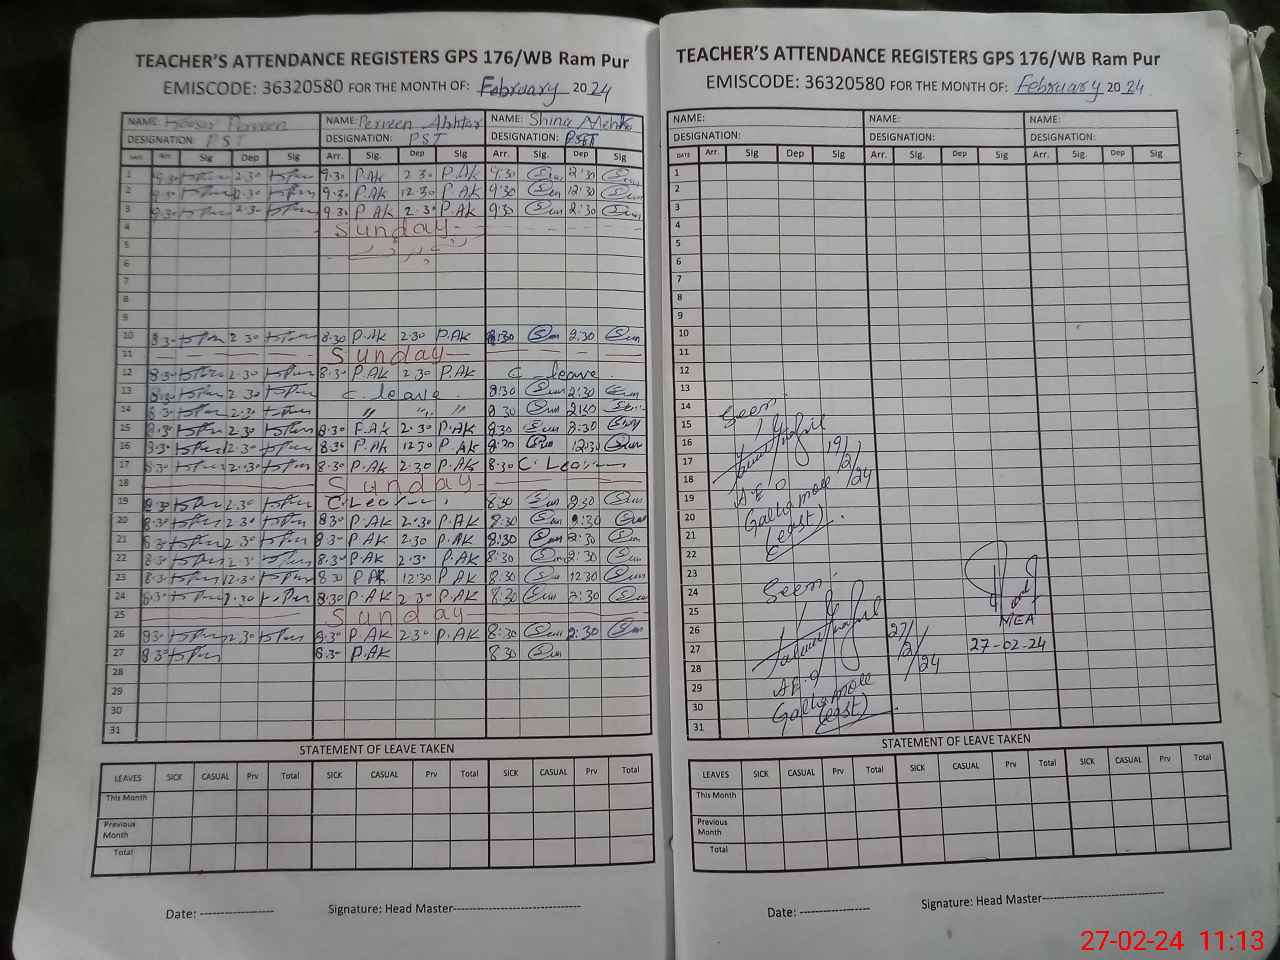 TEACHER'S ATTENDANCE REGISTERS GPS 176/WB Ram Pur
EMISCODE: 36320580 FOR THE MONTH OF: February 2024
NAME: Perveen NAME: Perveen Akhtar NAME: Shina
DESIGNATION: PST DESIGNATION: PST DESIGNATION: PST
DATE Arr. Sig Dep Sig Arr. Sig. Dep Sig Arr. Sig. Dep Sig
1 9.30 2.30 9.30 P.AK 2.30 P.AK 9.30 2:30
2 9.30 12.30 9.30 P.AK 12.30 P.AK 9:30 12:30
3 9.30 2.30 9.30 P.AK 2.30 P.AK 9:30 2:30
4 Sunday
5
6
7
8
9
10 8.30 2.30 8.30 P.AK 2.30 P.AK 8:30 2:30
11 Sunday
12 8.30 2.30 8.30 P.AK 2.30 P.AK C.leave.
13 8.30 2.30 C.leave. 8:30 2:30
14 8.30 2.30 〃 〃 〃 8.30 2:30
15 8.30 2.30 8.30 P.AK 2.30 P.AK 8.30 2:30
16 8.30 2.30 8.30 P.AK 12.30 P.AK 8:30 12:30
17 8.30 2.30 8.30 P.AK 2.30 P.AK 8.30 C.Lea
18 Sunday
19 8.30 2.30 C.Lea 8:30 2:30
20 8.30 2.30 8.30 P.AK 2.30 P.AK 8.30 2:30
21 8.30 2.30 8.30 P.AK 2.30 P.AK 8:30 2:30
22 8.30 2.30 8.30 P.AK 2.30 P.AK 8:30 2:30
23 8.30 12.30 8.30 P.AK 12.30 P.AK 8:30 12:30
24 8.30 2.30 8.30 P.AK 2.30 P.AK 8:30 2:30
25 Sunday
26 8.30 2.30 8.30 P.AK 2.30 P.AK 8:30 2:30
27 8.30 8.30 P.AK 8.30
28
29
30
31
STATEMENT OF LEAVE TAKEN
LEAVES SICK CASUAL Prv Total SICK CASUAL Prv Total SICK CASUAL Prv Total
This Month
Previous
Month
Total
Date: -------------------- Signature: Head Master-----------------------------------
TEACHER'S ATTENDANCE REGISTERS GPS 176/WB Ram Pur
EMISCODE: 36320580 FOR THE MONTH OF: February 2024
NAME: NAME: NAME:
DESIGNATION: DESIGNATION: DESIGNATION:
DATE Arr. Sig Dep Sig Arr. Sig. Dep Sig Arr. Sig. Dep Sig
1
2
3
4
5
6
7
8
9
10
11
12
13
14 Seen
15
16 19/2/24
17
18 AEO
19
20
21 (East).
22
23
24 Seen
25
26 MEA
27 27/2/24 27-02-24
28
29 AEO
30
31 (East)
STATEMENT OF LEAVE TAKEN
LEAVES SICK CASUAL Prv Total SICK CASUAL Prv Total SICK CASUAL Prv Total
This Month
Previous
Month
Total
Date: -------------------- Signature: Head Master-----------------------------------
27-02-24 11:13